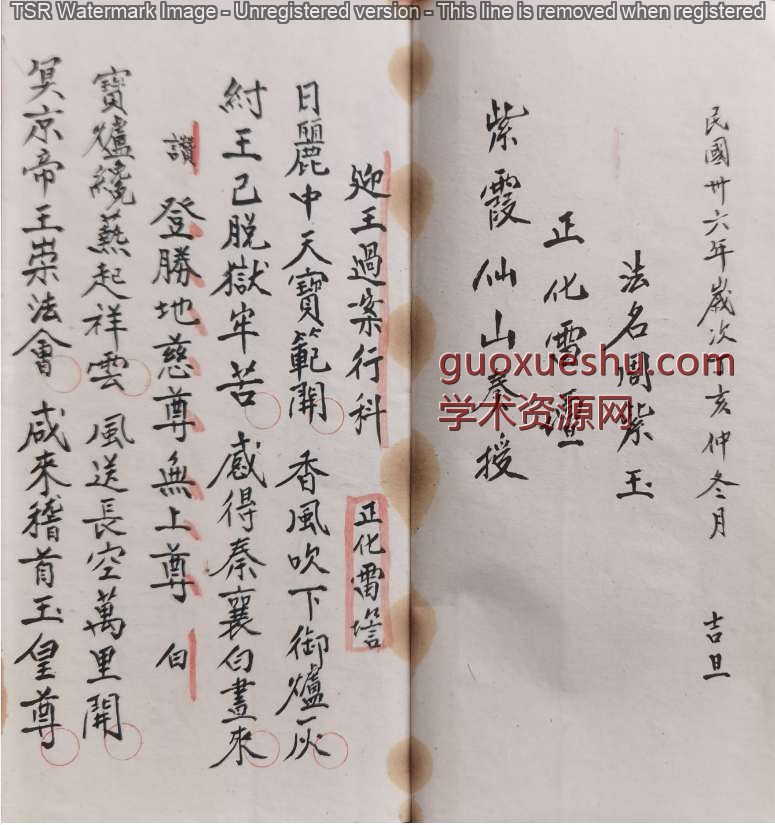 TSR Watermark Image - Unregistered version - This line is removed when registered
民國卅六年歲次丁亥仲冬月 吉旦
法名周紫玉
正化雷壇
紫霞仙山奏授
guoxueshu.com
学术资源网
迎王過案行科 正化雷壇
日麗中天寶範開 香風吹下御爐灰
紂王已脱獄牢苦 感得秦襄白晝來
讚 登勝地慈尊無上尊 白
寶爐纔爇起祥雲 風送長空萬里開
冥京帝王崇法會 咸來稽首玉皇尊